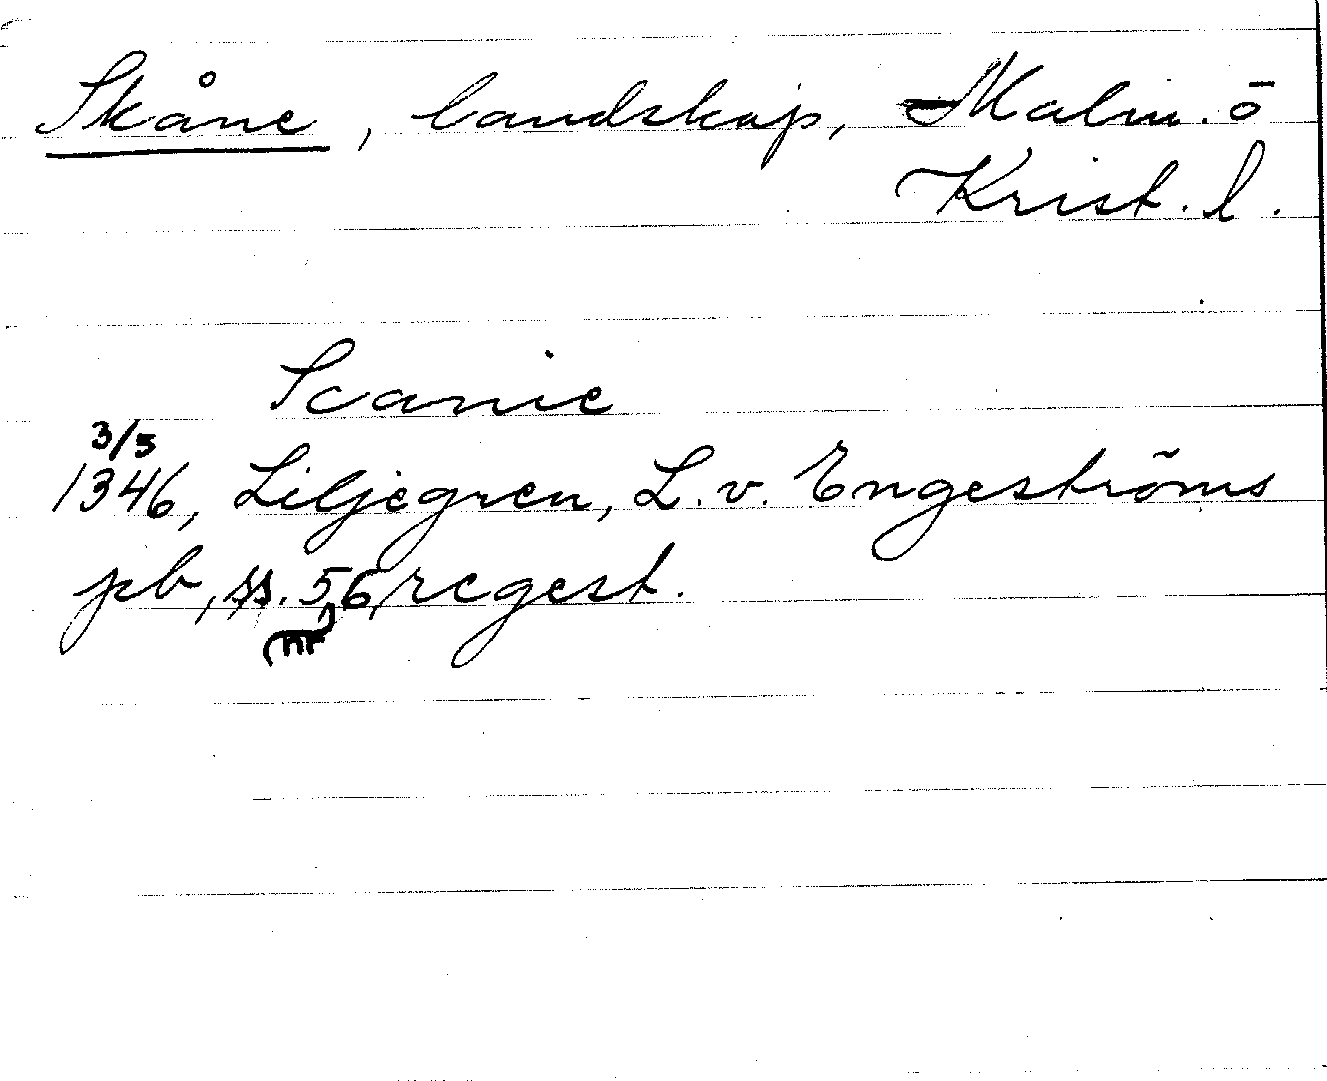 Skåne, landskap, Malm. ö
Krist. l.
Scanie
3/5
1346, Liljegren, L. v. Engeströms
pb, 56, regest.
nr